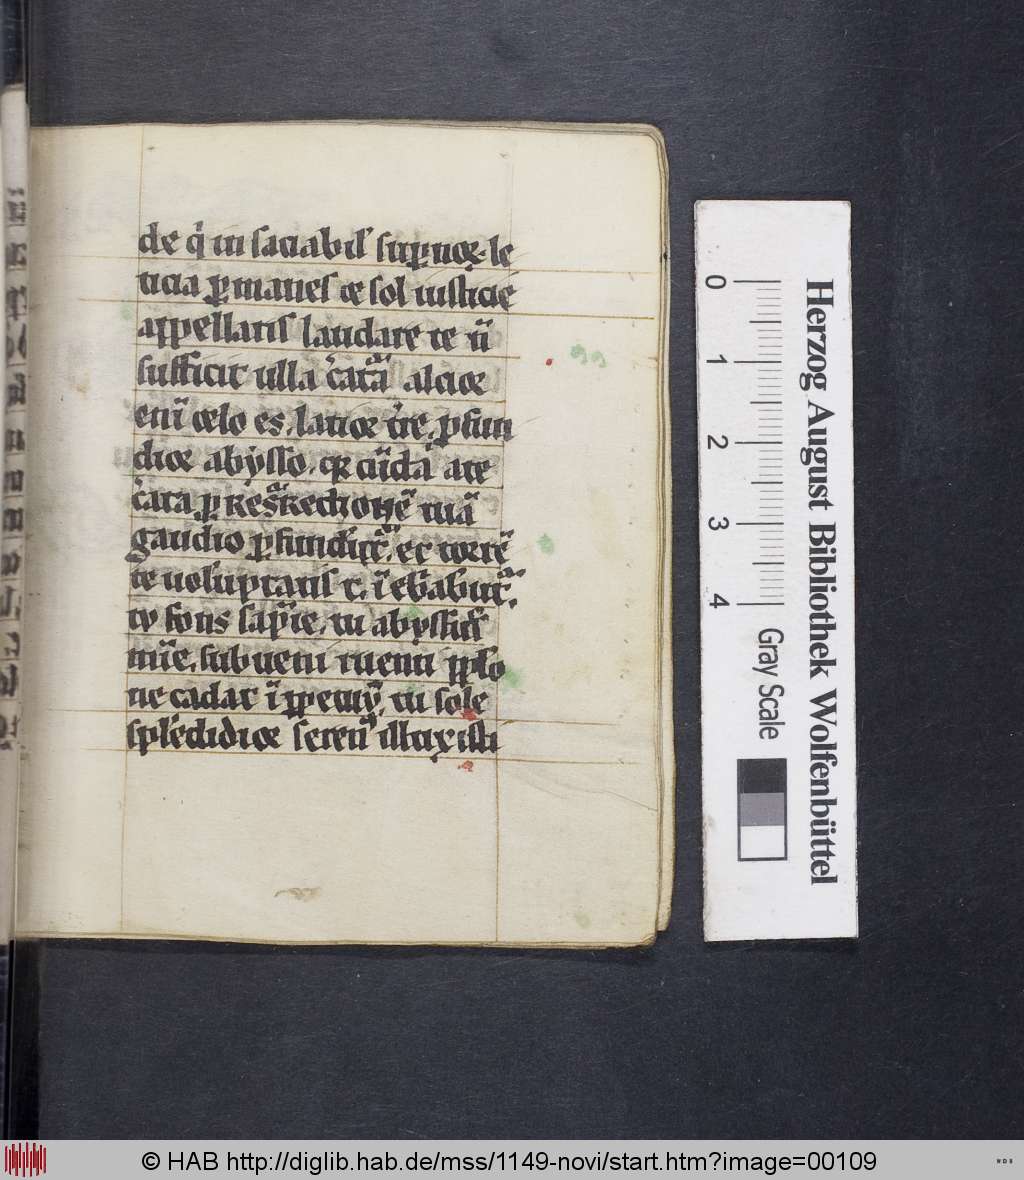 de qͥ in saciabilʼ supnoꝝ. le
ticia ꝑmanes ⁊ sol iusticie
appellaris laudare te nō
sufficit ulla cͥatᵃ̄ alcioꝛ
enī celo es, lacioꝛ tͥre, ꝓfun
dioꝛ abysso, qꝛ cūda a te
cͥata ꝑ ResͣRectionē tuā
gaudio ꝑfundūt᷑, et torrē
te uoluptatis t, īebͥabūt᷑,
tv fons sapīe, tu abyssus
mīe, subueni ruenti ipso
ne cadat ī ppetuū, tu sole
splēdidioꝛ serenᵘ illuxisti
Herzog August Bibliothek Wolfenbüttel
0 1 2 3 4 Gray Scale
© HAB http://diglib.hab.de/mss/1149-novi/start.htm?image=00109